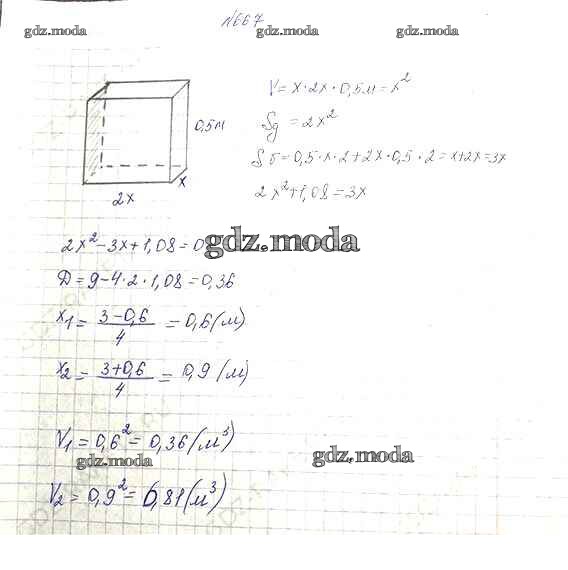 №667
gdz.moda gdz.moda
V = x·2x·0,5м = x²
Sд = 2x²
0,5м
Sб = 0,5·x·2+2x·0,5·2 = x+2x = 3x
x
2x
2x²+1,08 = 3x
2x²-3x+1,08 = 0
gdz.moda
D = 9-4·2·1,08 = 0,36
x1 = (3-0,6)/4 = 0,6(м)
x2 = (3+0,6)/4 = 0,9(м)
V1 = 0,6² = 0,36(м³)
gdz.moda gdz.moda
V2 = 0,9² = 0,81(м³)